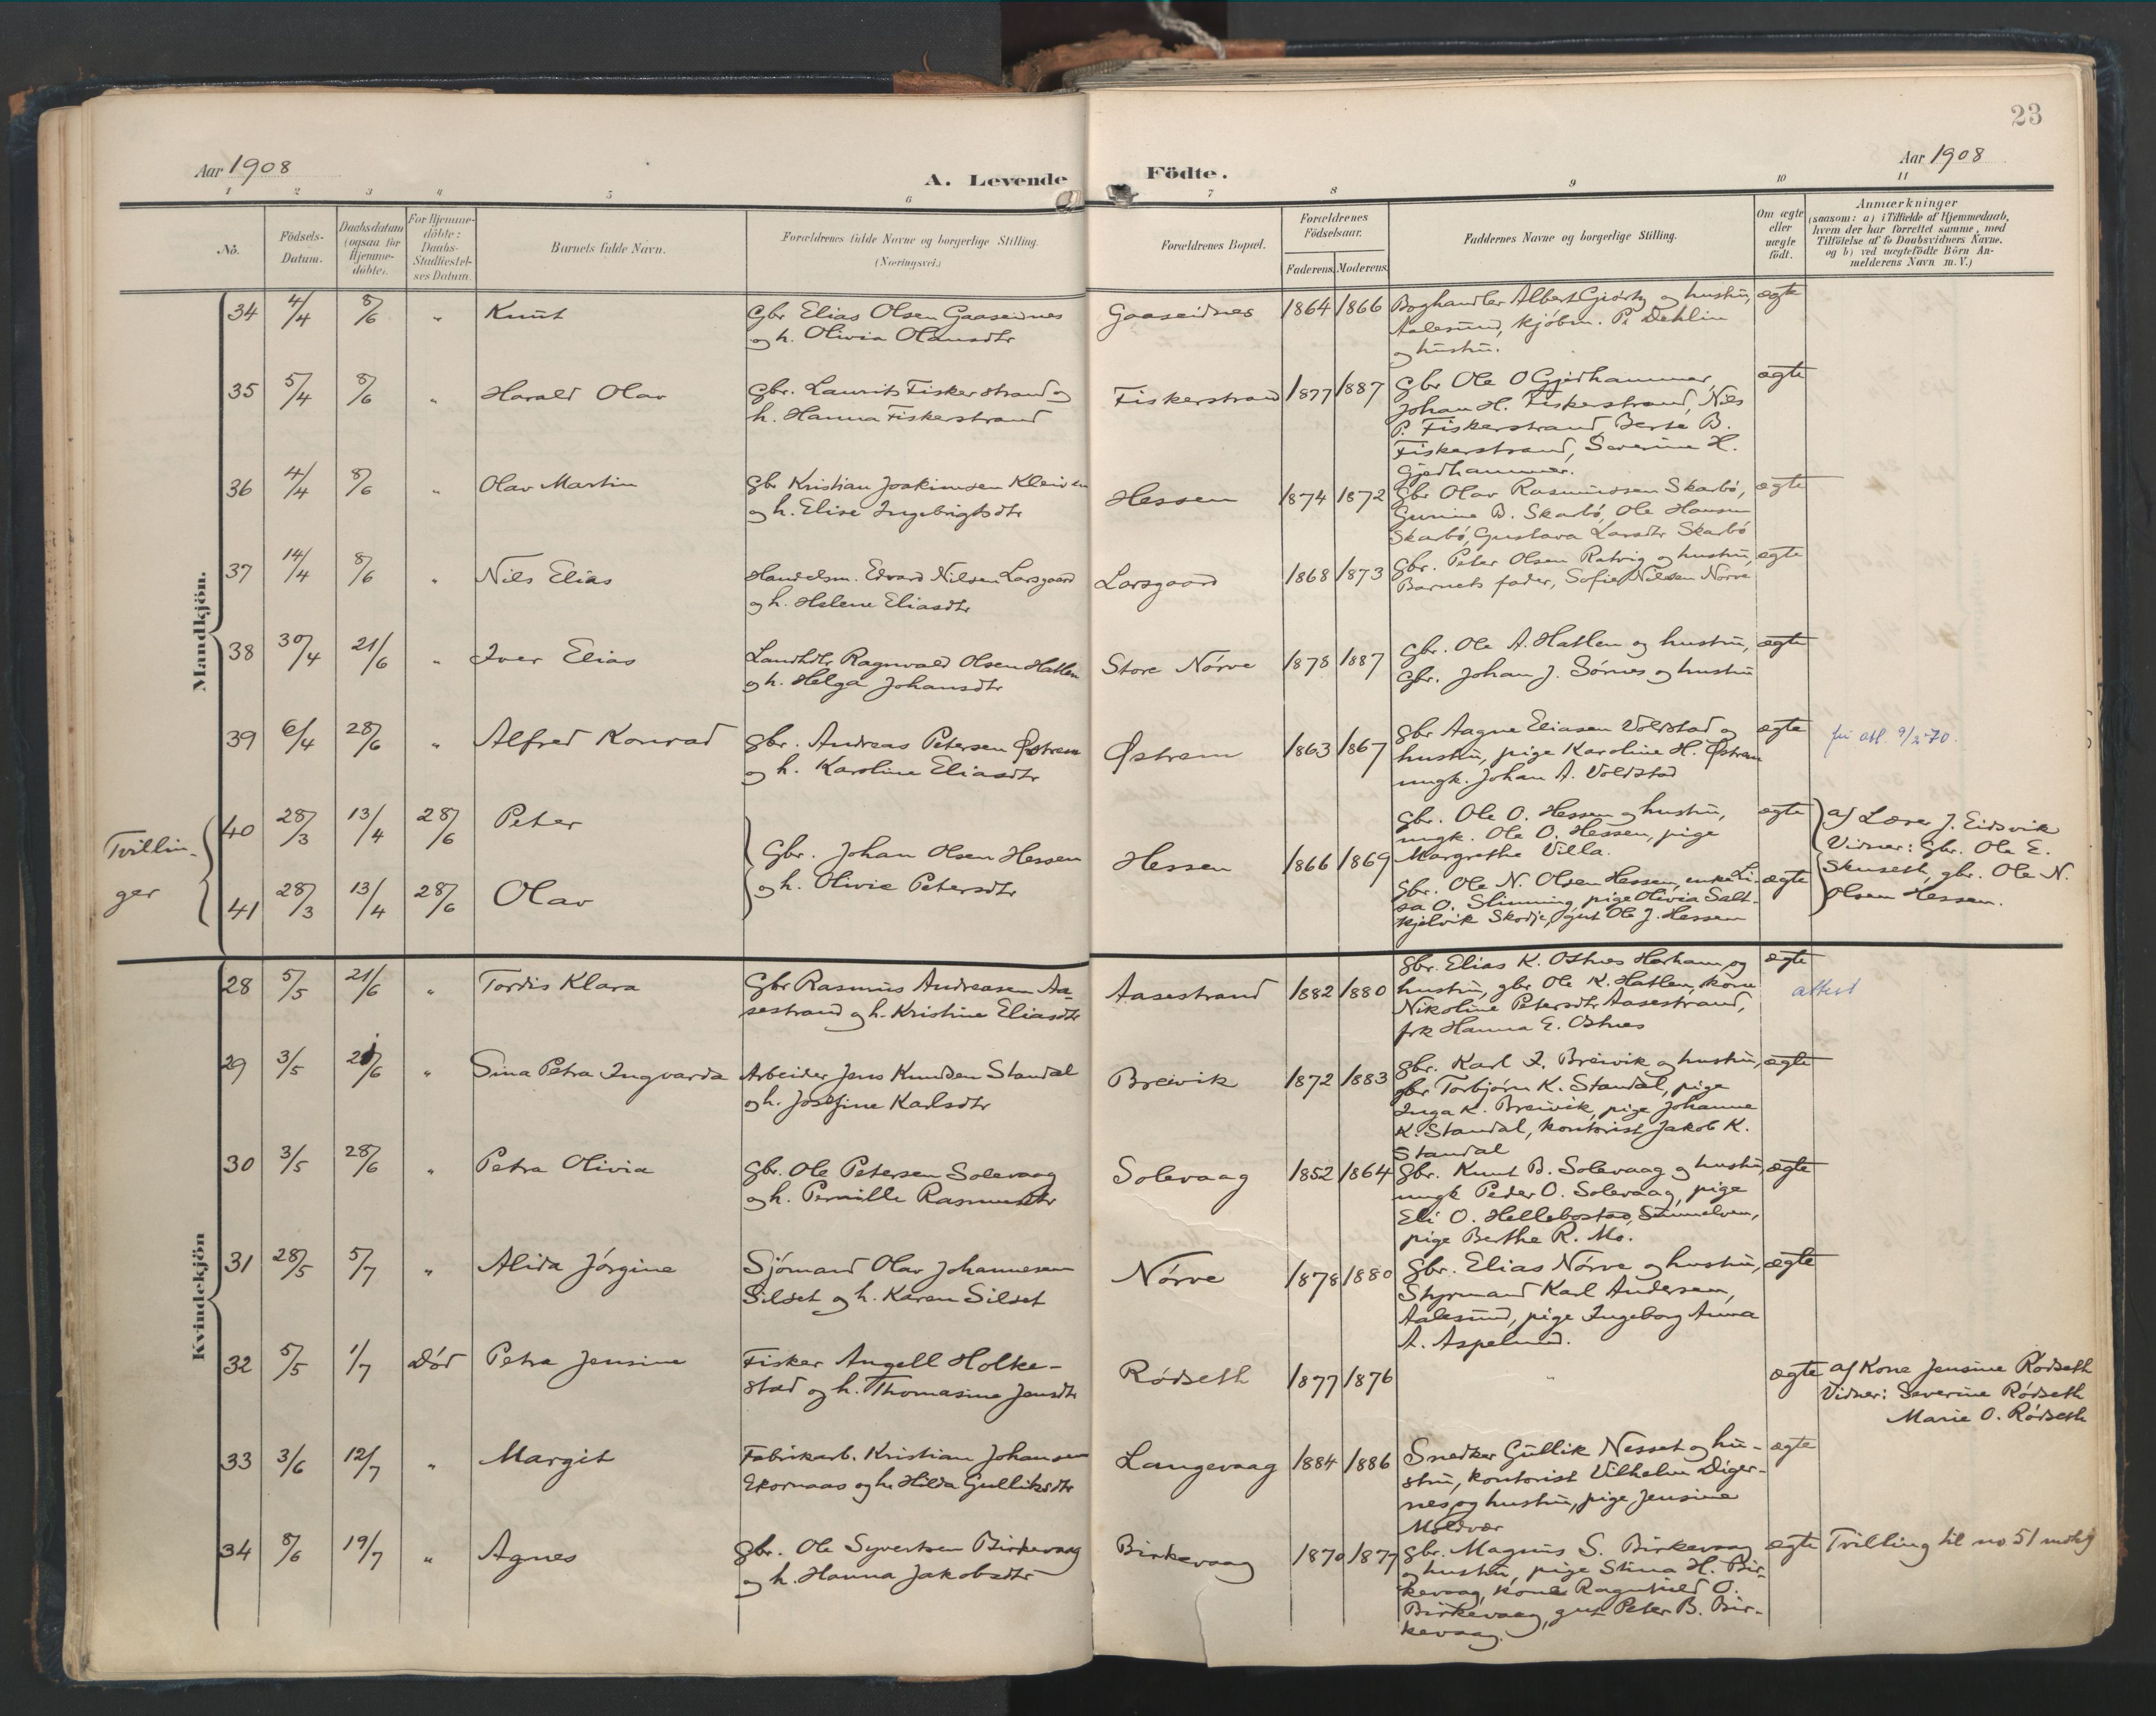 23
Aar 1908
A. Levende Födte.
Aar 1908
1 2 3 4 5 6 7 8 9 10 11
No.
Födsels-Datum.
Daabsdatum (ogsaa for Hjemme-döbte).
For Hjemme-döbte: Daabs-Stadfæstel-ses Datum.
Barnets fulde Navn.
Forældrenes fulde Navne og borgerlige Stilling. (Næringsvei.)
Forældrenes Bopæl.
Forældrenes Födselsaar.
Faderens. Moderens.
Faddernes Navne og borgerlige Stilling.
Om ægte eller uægte födt.
Anmærkninger
(saasom: a) i Tilfælde af Hjemmedaab,
hvem der har forrettet samme, med
Tilföielse af to Daabsvidners Navne,
og b) ved uægtefödte Börn An-
melderens Navn m. V.)
Mandkjön.
34 4/4 8/6 " Knut
Gbr Elias Olsen Gaaseidnes
og h. Olivia Olausdtr
Gaaseidnes 1864 1866
Boghandler Albert Giørtz og hustru,
Aalesund, kjøbm. P. Dehlin
og hustru.
ægte
35 5/4 8/6 " Harald Olav
Gbr. Laurits Fiskerstrand og
h. Hanna Fiskerstrand
Fiskerstrand 1877 1887
Gbr Ole O Gjedhammer,
Johan H. Fiskerstrand, Nils
P. Fiskerstrand, Berte B.
Fiskerstrand, Severine H.
Gjedhammer.
ægte
36 4/4 8/6 " Olav Martin
Gbr Kristian Joakimsen Kleiven
og h. Elise Ingebrigtsdtr
Hessen 1874 1872
Gbr Olav Rasmussen Skarbø,
Gurine B. Skarbø, Ole Hansen
Skarbø, Gustava Larsdtr Skarbø
ægte
37 14/4 8/6 " Nils Elias
Handelsm. Edvard Nilsen Larsgaard
og h. Helene Eliasdtr
Larsgaard 1868 1873
Gbr. Peter Olsen Ratvig og hustru,
Barnets fader, Sofie Nilsen Nørve
ægte
38 30/4 21/6 " Iver Elias
Landhdlr Ragnvald Olsen Hatlen
og h. Helga Johansdtr
Store Nørve 1878 1887
Gbr. Ole A. Hatlen og hustru,
Gbr. Johan J. Sørnes og hustru
ægte
39 6/4 28/6 " Alfred Konrad
Gbr. Andreas Petersen Østrem
og h. Karoline Eliasdtr
Østrem 1863 1867
Gbr Aagne Eliasen Voldstad og
hustru, pige Karoline H. Østrem
ungk. Johan A. Voldstad
ægte
Tvillin-
ger
40 28/3 13/4 28/6 Peter
41 28/3 13/4 28/6 Olav
Gbr. Johan Olsen Hessen
og h. Olivie Petersdtr
Hessen 1866 1869
Gbr. Ole O. Hessen og hustru,
ungk. Ole O. Hessen, pige
Margrethe Villa.
ægte
Gbr. Ole N. Olsen Hessen, enke Li-
sa O. Slinning, pige Olivia Salt-
kjelvik Skodje, gut Ole J. Hessen
ægte
af Lærer J. Eidsvik
Vidner: Gbr. Ole E.
Skuseth, gbr. Ole N.
Olsen Hessen.
Kvindekjön
28 5/5 21/6 " Tordis Klara
Gbr Rasmus Andreasen Aa-
sestrand og h. Kristine Eliasdtr
Aasestrand 1882 1880
Gbr. Elias K. Ostnes Harham og
hustru, gbr Ole K. Hatlen, kone
Nikoline Petersdtr Aasestrand,
frk Hanna E. Ostnes
ægte
attest
29 3/5 21/6 " Sina Petra Ingvarda
Arbeider Jens Knudsen Standal
og h. Josefine Karlsdtr
Breivik 1872 1883
Gbr. Karl I. Breivik og hustru,
gbr Torbjørn K. Standal, pige
Inga K. Breivik, pige Johanne
K. Standal, kontorist Jakob K.
Standal
ægte
30 3/5 28/6 " Petra Olivia
Gbr. Ole Petersen Solevaag
og h. Pernille Rasmusdtr
Solevaag 1852 1864
Gbr. Knut B. Solevaag og hustru,
ungk Peder O. Solevaag, pige
Eli O. Hellebostad, Sunnelven,
pige Berthe R. Mo.
ægte
31 28/5 5/7 " Alida Jørgine
Sjømand Olav Johannesen
Sildset og h. Karen Sildset
Nørve 1878 1880
Gbr. Elias Nørve og hustru,
Styrmand Karl Andersen,
Aalesund, pige Ingeborg Anna
A. Aspelund.
ægte
32 5/5 1/7 Død Petra Jensine
Fisker Angell Holke-
stad og h. Thomasine Jensdtr
Rødseth 1877 1876
"
ægte
af Kone Jensine Rødseth
Vidner: Severine Rødseth
Marie O. Rødseth
33 3/6 12/7 " Margit
Fabrikarb. Kristian Johansen
Ekornaas og h. Hilda Gulliksdtr
Langevaag 1884 1886
Snedker Gullik Nesset og hu-
stru, kontorist Vilhelm Diger-
nes og hustru, pige Jensine
Moldvær
ægte
34 8/6 19/7 " Agnes
Gbr. Ole Syvertsen Birkevaag
og h. Hanna Jakobsdtr
Birkevaag 1870 1877
Gbr. Magnus S. Birkevaag
og hustru, pige Stina H. Bir-
kevaag, kone Ragnhild O.
Birkevaag, gut Peter B. Bir-
kevaag.
ægte
Tvilling til no 51